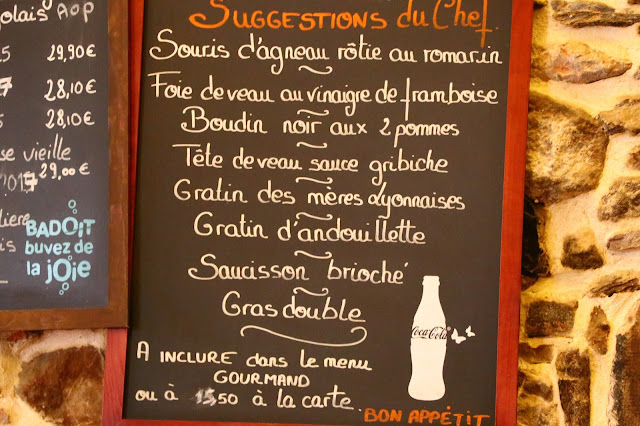 golais AOP
5 29,90€
7 28,10€
5 28,10€
se vieille
2017 29,00€
liere
is
BADOIT
buvez de
la joie
SUGGESTIONS du Chef
Souris d'agneau rôtie au romarin
Foie de veau au vinaigre de framboise
Boudin noir aux 2 pommes
Tête de veau sauce gribiche
Gratin des mères Lyonnaises
Gratin d'andouillette
Saucisson brioché
Gras double
Coca-Cola
A INCLURE dans le menu
GOURMAND
ou à 1550 à la carte
BON APPÉTIT